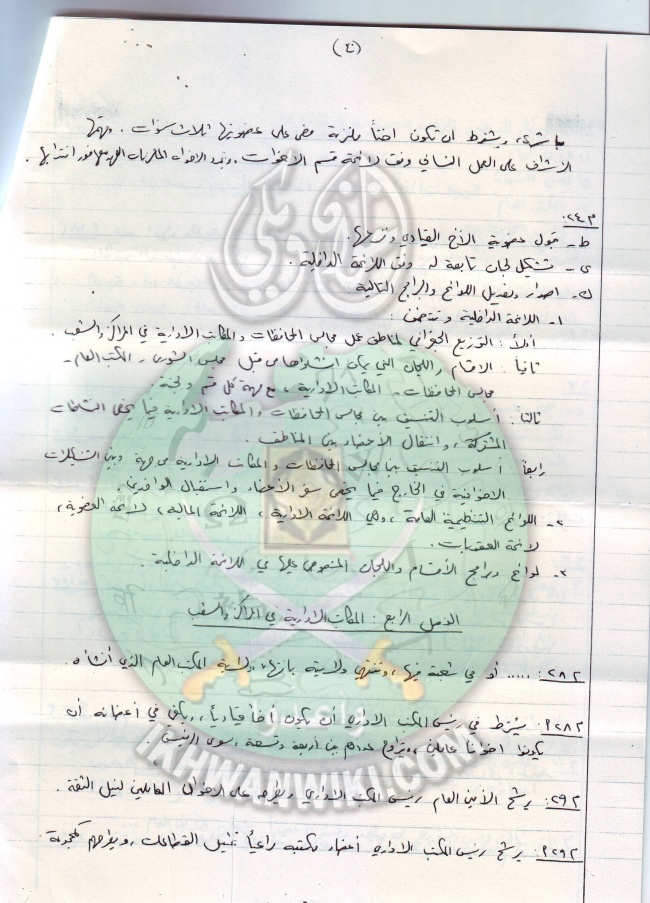 (٤)
مباشرة، ويشترط ان تكون اختاً ملتزمة مضى على عضويتها ثلاث سنوات. ومهمتها
الاشراف على العمل النسائي وفق لائحة قسم الاخوات. وتبدأ الاخوات الملتزمات
م٢٤:
ط- قبول عضوية الأخ القيادي
ي- تشكيل لجان تابعة له وفق اللائحة الداخلية.
ك- اصدار وتعديل اللوائح والبرامج التالية:
١- اللائحة الداخلية وتتضمن:
اولاً: التوزيع الجغرافي لمناطق عمل مجالس المحافظات والمكاتب الادارية في المراكز والشعب.
ثانياً: الاقسام واللجان التي يمكن انشاؤها من قبل مجلس الشورى - المكتب العام -
مجالس المحافظات - المكاتب الادارية، مع مهمة كل قسم ولجنة.
ثالثاً: أسلوب التنسيق بين مجالس المحافظات والمكاتب الادارية فيما يخص النشاطات
المشتركة، وانتقال الأعضاء بين المناطق.
رابعاً: أسلوب التنسيق بين مجالس المحافظات والمكاتب الادارية من جهة وبين التشكيلات
الاخوانية في الخارج فيما يخص سفر الأعضاء واستقبال الوافدين.
٢- اللوائح التنظيمية العامة، وهي اللائحة الادارية، اللائحة المالية، لائحة العضوية،
لائحة العقوبات.
٣- لوائح وبرامج الأقسام واللجان المنصوص عليها في اللائحة الداخلية.
الفصل الرابع: المكاتب الادارية في المراكز والشعب
م٢٨: ..... أو في شعبة منها، وتنتهي ولايته بانتهاء ولاية المكتب العام الذي أنشأه.
م٢٨م: يشترط في رئيس المكتب الاداري أن يكون أخاً قيادياً، ويكفي في أعضائه أن
يكونوا اخواناً عاملين، ويتراوح عددهم بين أربعة وتسعة، سوى الرئيس.
م٢٩: يرشح الأمين العام رئيس المكتب الاداري ويطرحه على الاخوان العاملين لنيل الثقة.
م٢٩م: يرشح رئيس المكتب الاداري أعضاء مكتبه راعياً تمثيل القطاعات، ويطرحهم كمجموعة
إخوان ويكي
وأعدوا
IKHWANWIKI.COM